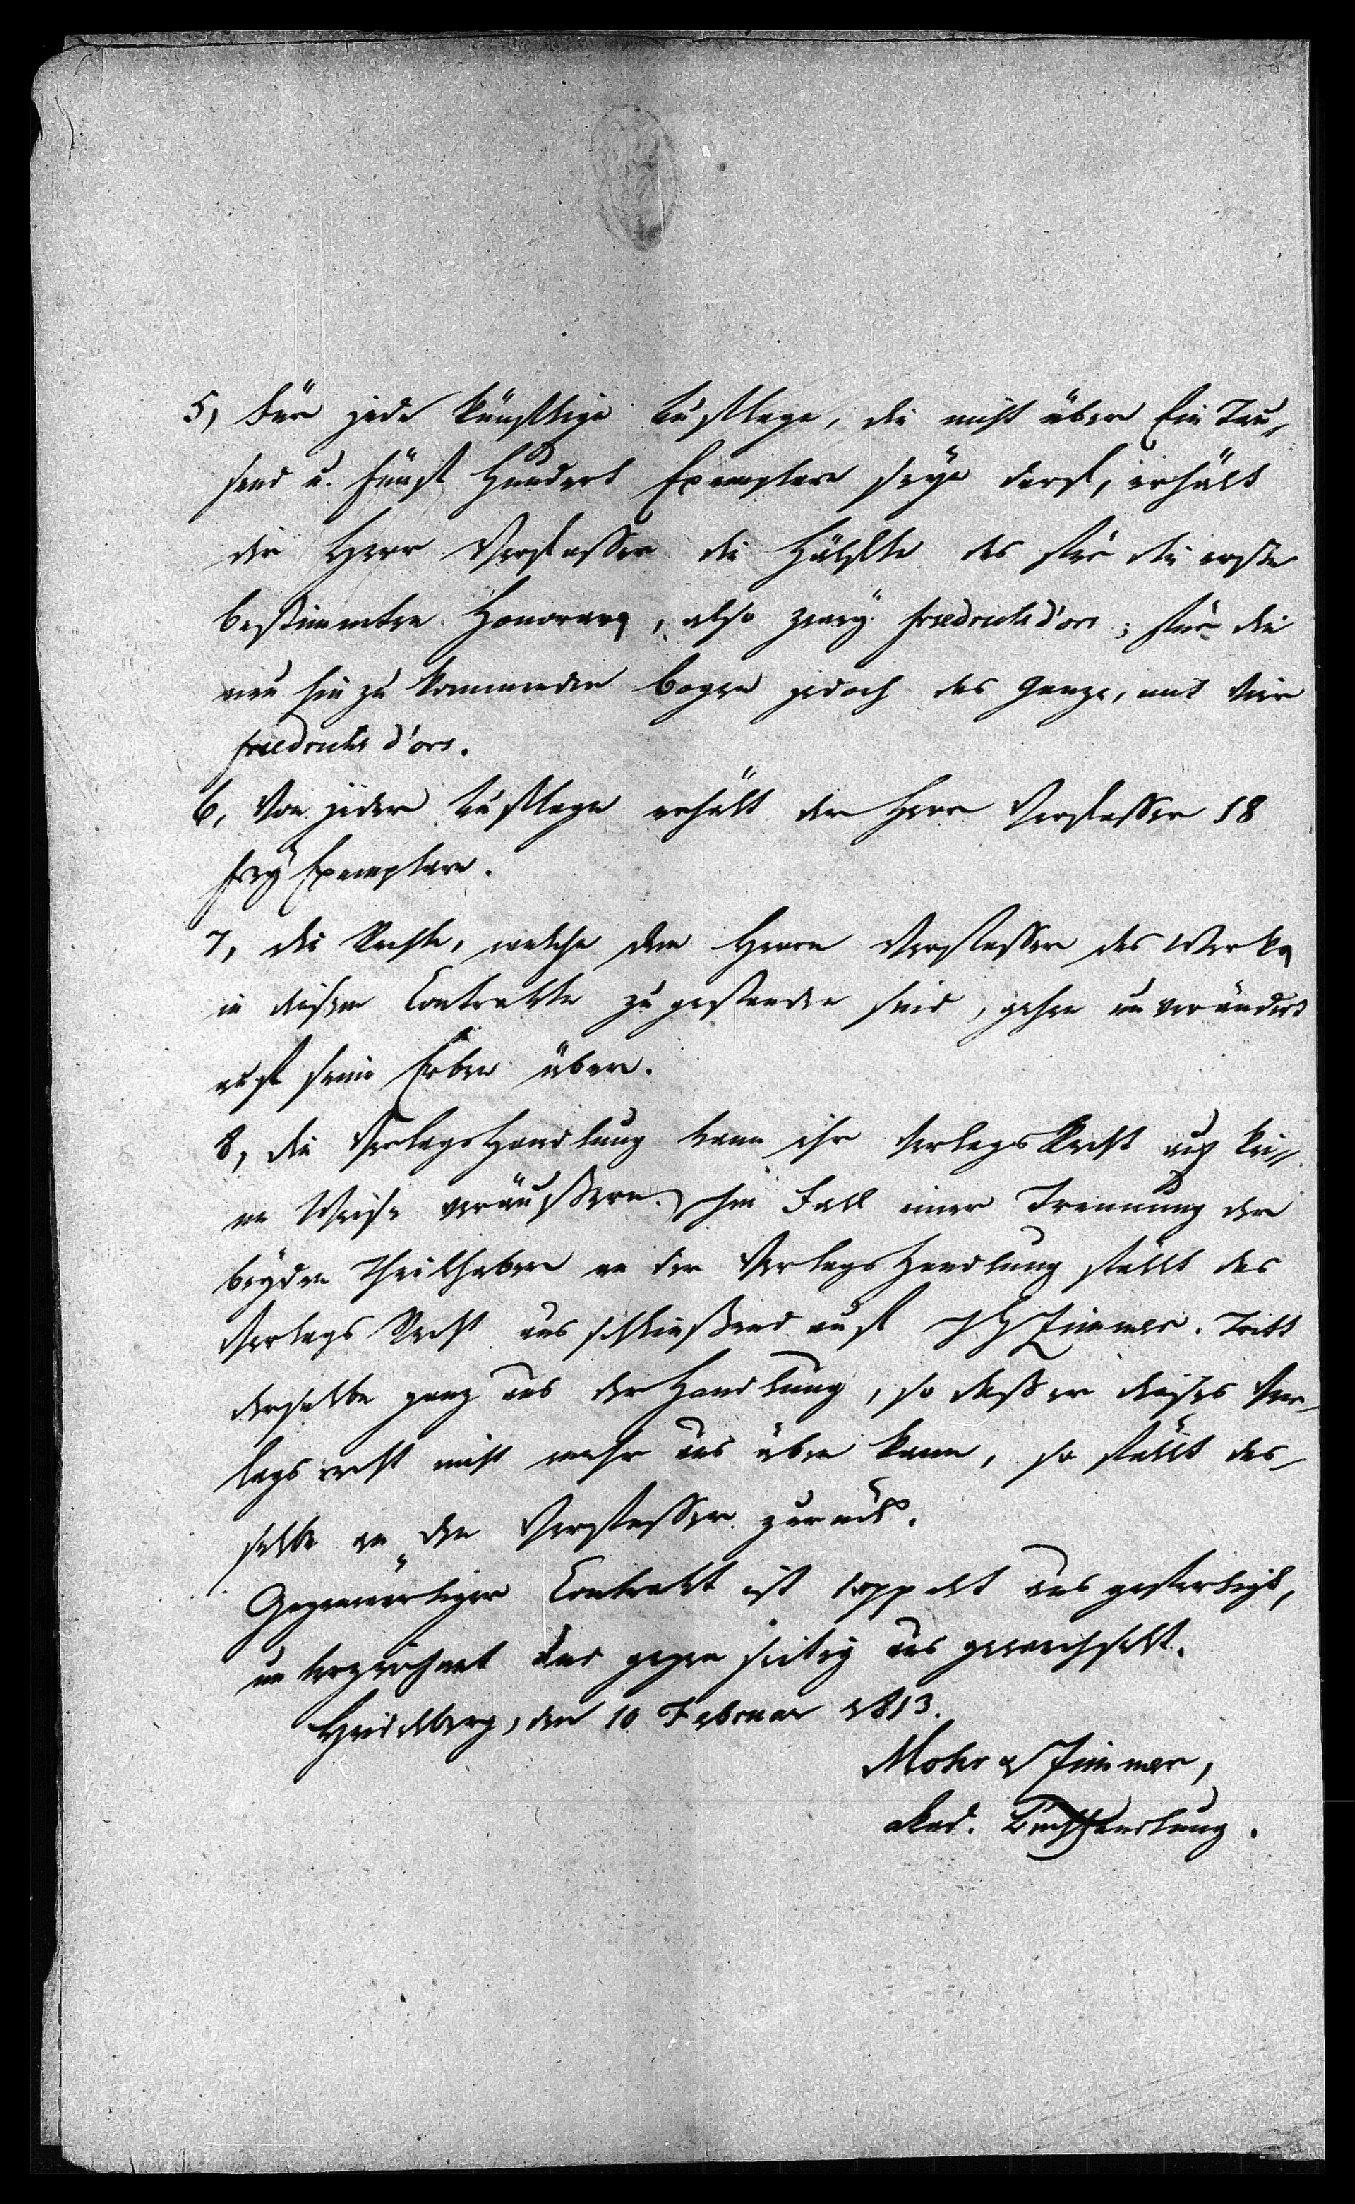 5, Für jede künftige Auflage, die nicht über Ein Tau-
send u. fünf Hundert Exemplare seyn darf, erhält
der Herr Verfasser die Hälfte des für die erste
bestimmten Honorars, also zwey friedrichsd'or; für die
neu hinzu kommenden Bogen jedoch das Ganze, mit vier
friedrichs d'or.
6, Von jeder Auflage erhält der Herr Verfasser 18
frey Exemplare.
7, die Rechte, welche dem Herrn Verfasser des Werks
in diesem Contrakte zugestanden sind, gehen unverändert
auf seine Erben über.
8, die Verlagshandlung kann ihr Verlags Recht auf kei-
ne Weise veräußern. Im Fall einer Trennung der
beyden Theilhaber an der Verlags Handlung fällt das
Verlags Recht ausschließend auf J G Zimmer. Tritt
derselbe ganz aus der Handlung, so daß er dieses Ver-
lagsrecht nicht mehr ausüben kann, so fällt das-
selbe an den Verfasser zurück.
Gegenwärtiger Contrakt ist doppelt ausgefertigt,
unterzeichnet und gegenseitig ausgewechselt.
Heidelberg, den 10 Februar 1813.
Mohr & Zimmer,
akad. Buchhandlung.